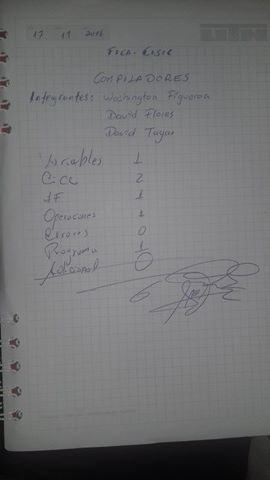 17 11 2016
FICA - CISIC
COMPILADORES
Integrantes: Washington Figueroa
David Flores
David Tayan
Variables 1
Cicl 2
IF 1
Operaciones 1
Errores 0
Programa 1
Adicional 0
6